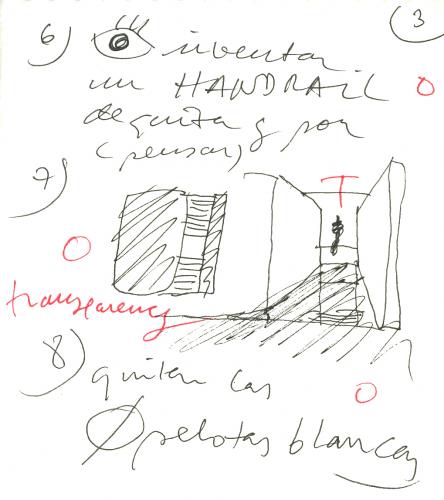 3
6) inventar
un HANDRAIL
de quita y pon
(pensar)
7)
T
transparency
8)
quiten las
pelotas blancas